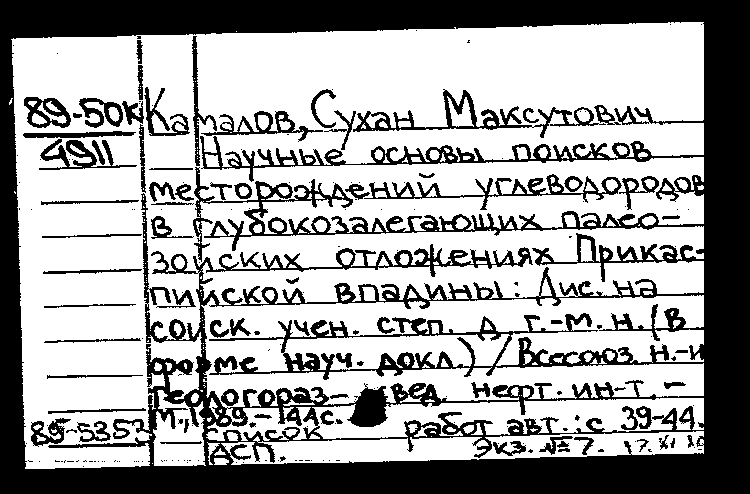 89-50к Камалов, Сухан Максутович.
4911 Научные основы поисков
месторождений углеводородов
в глубокозалегающих палео-
зойских отложениях Прикас-
пийской впадины: Дис. на
соиск. учен. степ. д. г.-м. н. (В
форме науч. докл.) / Всесоюз. н.-и
геологораз- вед. нефт. ин-т. -
М., 1989. - 144с.
89-5353 список работ авт.: с 39-44.
АСП. Экз. №7.